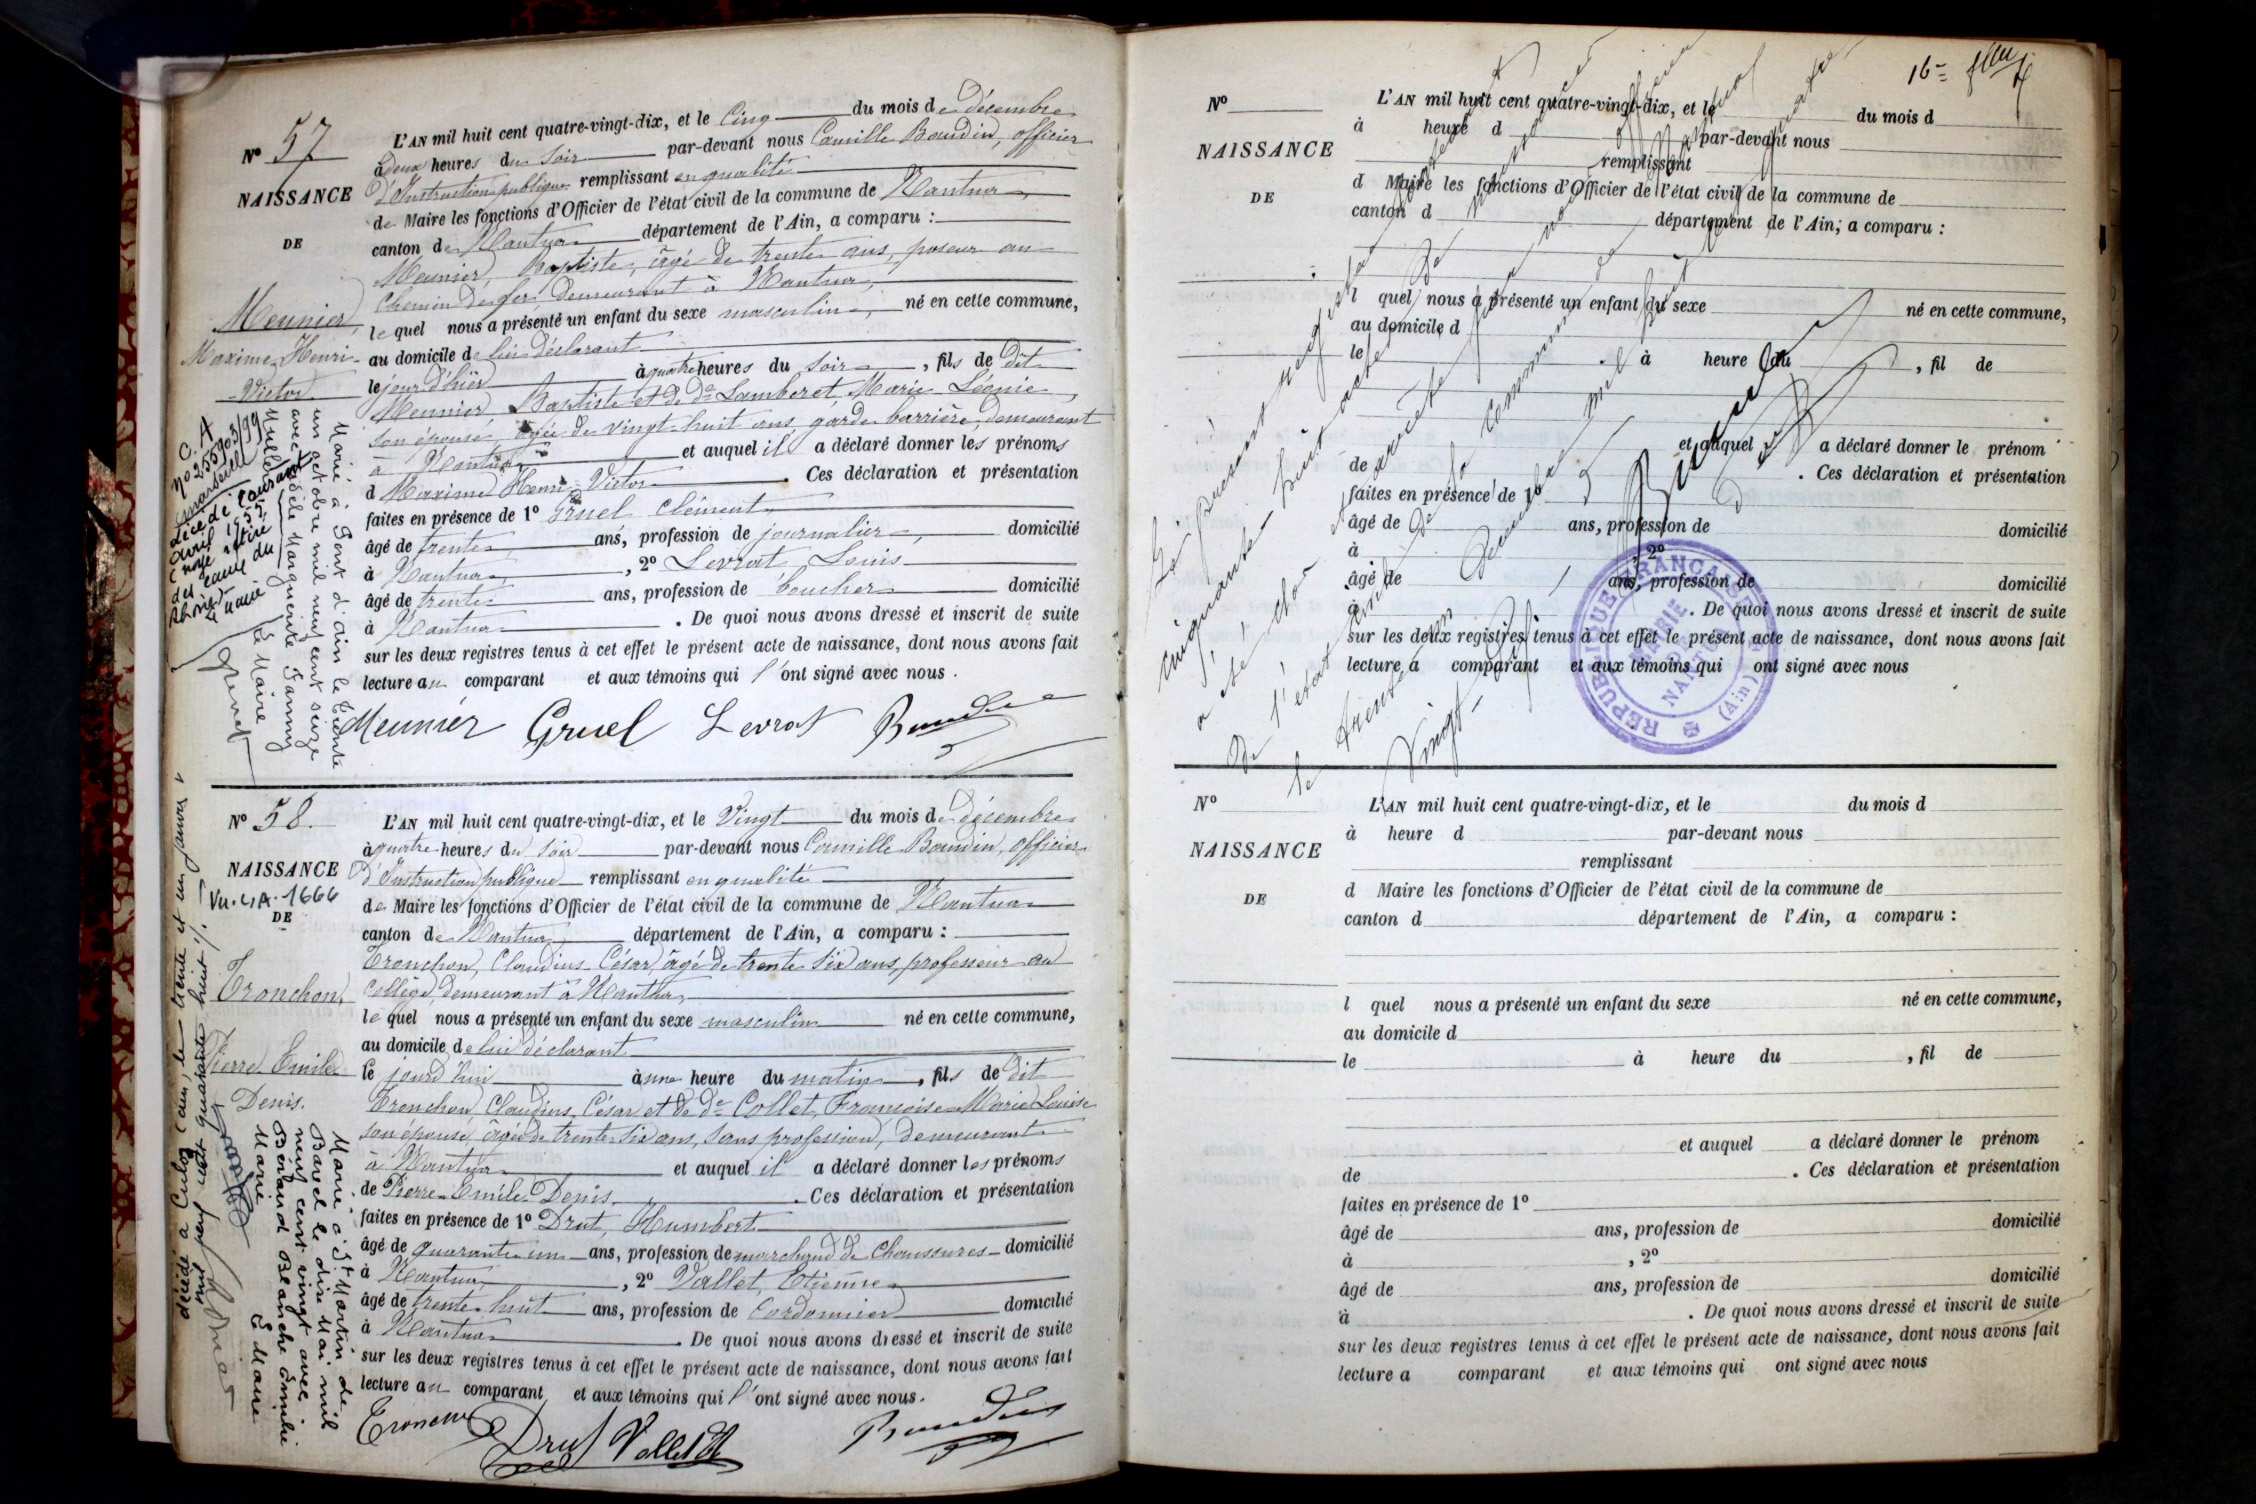 N° 57
NAISSANCE
DE
Meunier,
Maxime Henri
Victor
L'AN mil huit cent quatre-vingt-dix, et le Cinq du mois de décembre
à deux heures du soir par-devant nous Camille Baudin, officier
d'Instruction publique remplissant en qualité
de Maire les fonctions d'Officier de l'état civil de la commune de Nantua,
canton de Nantua département de l'Ain, a comparu :
Meunier, Baptiste, âgé de trente ans, poseur au
Chemin de fer demeurant à Nantua,
le quel nous a présenté un enfant du sexe masculin, né en cette commune,
au domicile de lui déclarant
le jour d'hier à quatre heures du soir, fils de dit
Meunier Baptiste et de De Lamberet, Marie Léonie,
son épouse, âgée de vingt-huit ans, garde barrière, demeurant
à Nantua et auquel il a déclaré donner les prénoms
d Maxime Henri Victor. Ces déclaration et présentation
faites en présence de 1° Gruel Clément,
âgé de trente ans, profession de journalier, domicilié
à Nantua, 2° Levrat Louis
âgé de trente ans, profession de boucher domicilié
à Nantua. De quoi nous avons dressé et inscrit de suite
sur les deux registres tenus à cet effet le présent acte de naissance, dont nous avons fait
lecture au comparant et aux témoins qui l'ont signé avec nous.
Meunier Gruel Levrat Baudin
Marié à Pont d'Ain le trente
un octobre mil neuf cent seize
avec Adèle Marguerite Fanny
Muller
Le Maire
C. A
n° 255903/99
Marseille
avril 1955
Le Maire
N° 58.
NAISSANCE
Vu. C.A. 1666
DE
Tronchon,
Pierre Emile
Denis.
L'AN mil huit cent quatre-vingt-dix, et le Vingt du mois de décembre
à quatre heures du soir par-devant nous Camille Baudin, officier
d'Instruction publique remplissant en qualité
de Maire les fonctions d'Officier de l'état civil de la commune de Nantua
canton de Nantua département de l'Ain, a comparu :
Tronchon, Claudius César, âgé de trente six ans, professeur au
Collège, demeurant à Nantua,
le quel nous a présenté un enfant du sexe masculin né en cette commune,
au domicile de lui déclarant
le jourd'hui à une heure du matin, fils de dit
Tronchon Claudius, César et de De Collet, Françoise Marie Louise
son épouse, âgée de trente six ans, sans profession, demeurant
à Nantua et auquel il a déclaré donner les prénoms
de Pierre Emile Denis. Ces déclaration et présentation
faites en présence de 1° Drut, Humbert
âgé de quarante-un ans, profession de marchand de Chaussures domicilié
à Nantua, 2° Vallet, Etienne
âgé de trente huit ans, profession de Cordonnier domicilié
à Nantua. De quoi nous avons dressé et inscrit de suite
sur les deux registres tenus à cet effet le présent acte de naissance, dont nous avons fait
lecture au comparant et aux témoins qui l'ont signé avec nous.
Tronchon Drut Vallet Baudin
Marié à St Martin de
Bavel le dix Mai mil
neuf cent vingt avec
Béraud Blanche Émilie
Marie
Le Maire
décédé à Culoz (Ain) le trente et un janvier
mil neuf cent quarante huit
N°
NAISSANCE
DE
L'AN mil huit cent quatre-vingt-dix, et le du mois d
à heure d par-devant nous
remplissant
d Maire les fonctions d'Officier de l'état civil de la commune de
canton d département de l'Ain; a comparu :
l quel nous a présenté un enfant du sexe né en cette commune,
au domicile d
le à heure du , fil de
et auquel a déclaré donner le prénom
de . Ces déclaration et présentation
faites en présence de 1°
âgé de ans, profession de domicilié
à , 2°
âgé de ans, profession de domicilié
à . De quoi nous avons dressé et inscrit de suite
sur les deux registres tenus à cet effet le présent acte de naissance, dont nous avons fait
lecture a comparant et aux témoins qui ont signé avec nous
Le présent registre
cinquante-huit actes
a été clos et arrêté
de l'état civil de la commune de
le trente-un décembre mil huit
Vingt-dix
Baudin
RÉPUBLIQUE FRANÇAISE
MAIRIE
DE
NANTUA
(Ain)
N°
NAISSANCE
DE
L'AN mil huit cent quatre-vingt-dix, et le du mois d
à heure d par-devant nous
remplissant
d Maire les fonctions d'Officier de l'état civil de la commune de
canton d département de l'Ain, a comparu :
l quel nous a présenté un enfant du sexe né en cette commune,
au domicile d
le à heure du , fil de
et auquel a déclaré donner le prénom
de . Ces déclaration et présentation
faites en présence de 1°
âgé de ans, profession de domicilié
à , 2°
âgé de ans, profession de domicilié
à . De quoi nous avons dressé et inscrit de suite
sur les deux registres tenus à cet effet le présent acte de naissance, dont nous avons fait
lecture a comparant et aux témoins qui ont signé avec nous